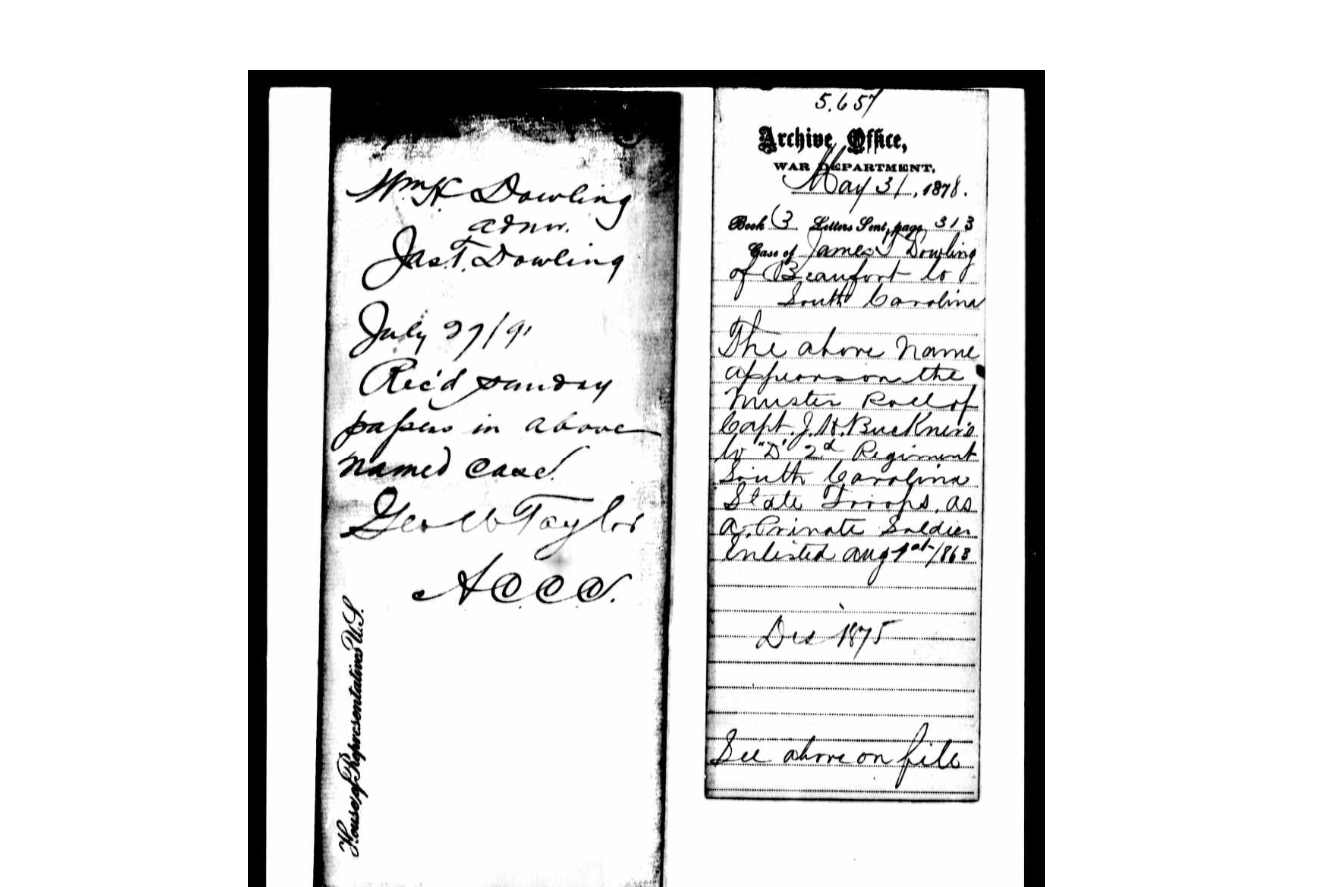 Wm H Dowling
admr.
Jas T. Dowling
July 27/91
Rec'd sunday
papers in above
named case.
Geo W Taylor
A C C C.
House of Representatives U.S.
5.657
Archive Office,
WAR DEPARTMENT,
May 31, 1878.
Book 3 Letters Sent, page 313
Case of James T Dowling
of Beaufort Co
South Carolina
The above name
appears on the
Muster Roll of
Capt. J. H. Buckner's
Co "D" 2d Regiment
South Carolina
State Troops, as
a Private Soldier
Enlisted Aug 1st/863
Dis 1875
See above on file